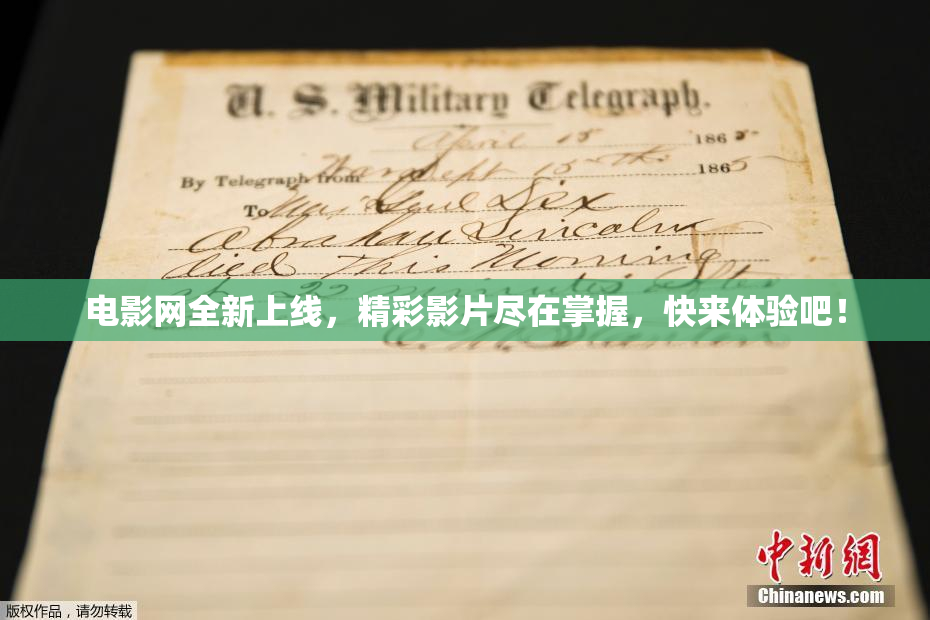 U. S. Military Telegraph.
April 15 1865
By Telegraph from War Dept 15th 1865
To Maj Genl Dix
Abraham Lincoln
died This Morning
at 22 minutes after
电影网全新上线，精彩影片尽在掌握，快来体验吧！
E. M. Stanton
中新网
Chinanews.com
版权作品，请勿转载